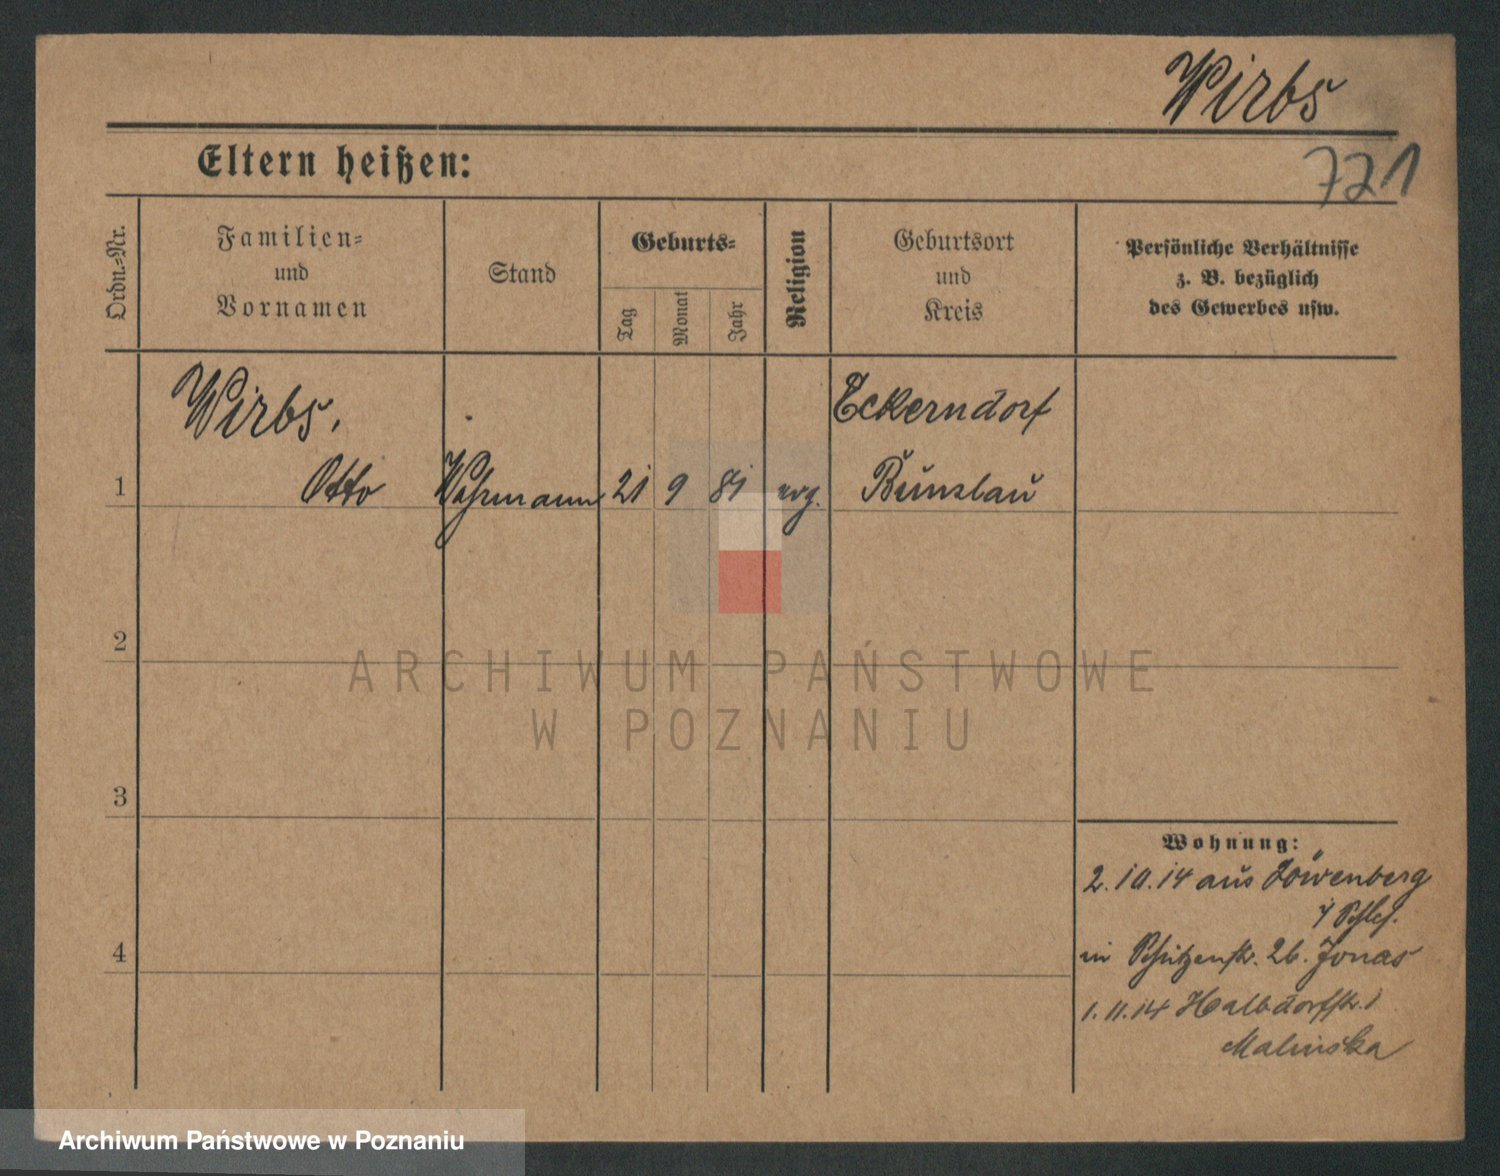 Wirbs
Eltern heißen:
721
Ordn.-Nr.
Familien-
und
Vornamen
Stand
Geburts-
Tag
Monat
Jahr
Religion
Geburtsort
und
Kreis
Persönliche Verhältnisse
z. B. bezüglich
des Gewerbes usw.
Wirbs,
Eckerndorf
1 Otto Wehrmann 21 9 81 evg. Bunzlau
2
ARCHIWUM PAŃSTWOWE
W POZNANIU
3
Wohnung:
2. 10. 14 aus Löwenberg
i/ Schles.
4
in Schützenstr. 26. Jonas
1. 11. 14 Halbdorfstr. 1
Malinska
Archiwum Państwowe w Poznaniu